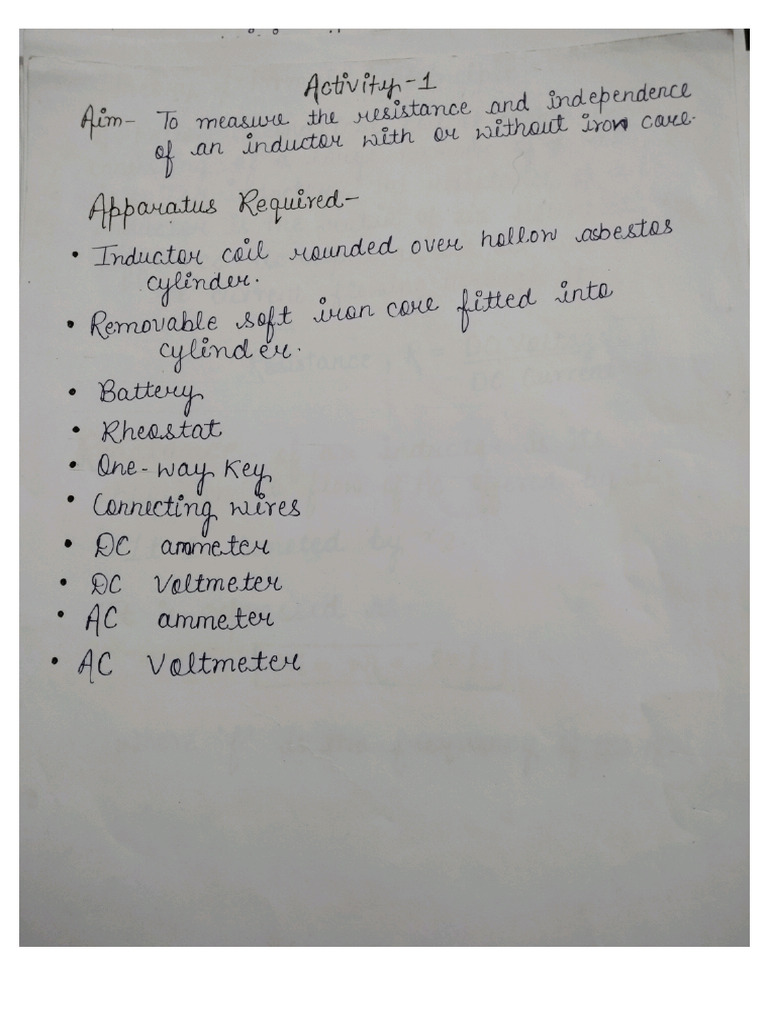 Activity-1
Aim- To measure the resistance and independence
of an inductor with or without iron care.
Apparatus Required-
• Inductor coil rounded over hollow asbestos
cylinder.
• Removable soft iron core fitted into
cylinder.
• Battery
• Rheostat
• One-way Key
• Connecting wires
• DC ammeter
• DC Voltmeter
• AC ammeter
• AC Voltmeter